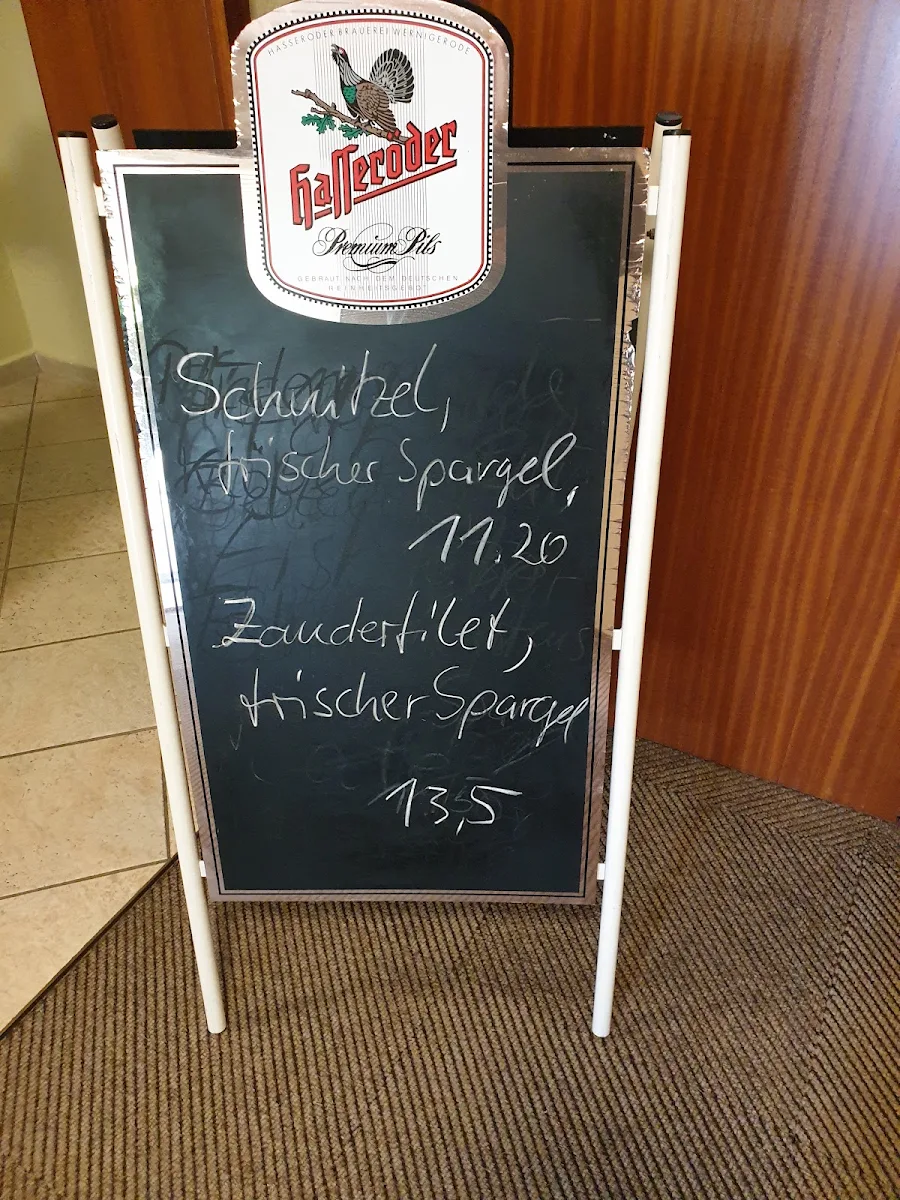 HASSERÖDER BRAUEREI WERNIGERODE
Hasseröder
Premium Pils
GEBRAUT NACH DEM DEUTSCHEN
REINHEITSGEBOT
Schnitzel,
frischer Spargel,
11.20
Zanderfilet,
frischer Spargel
13,5